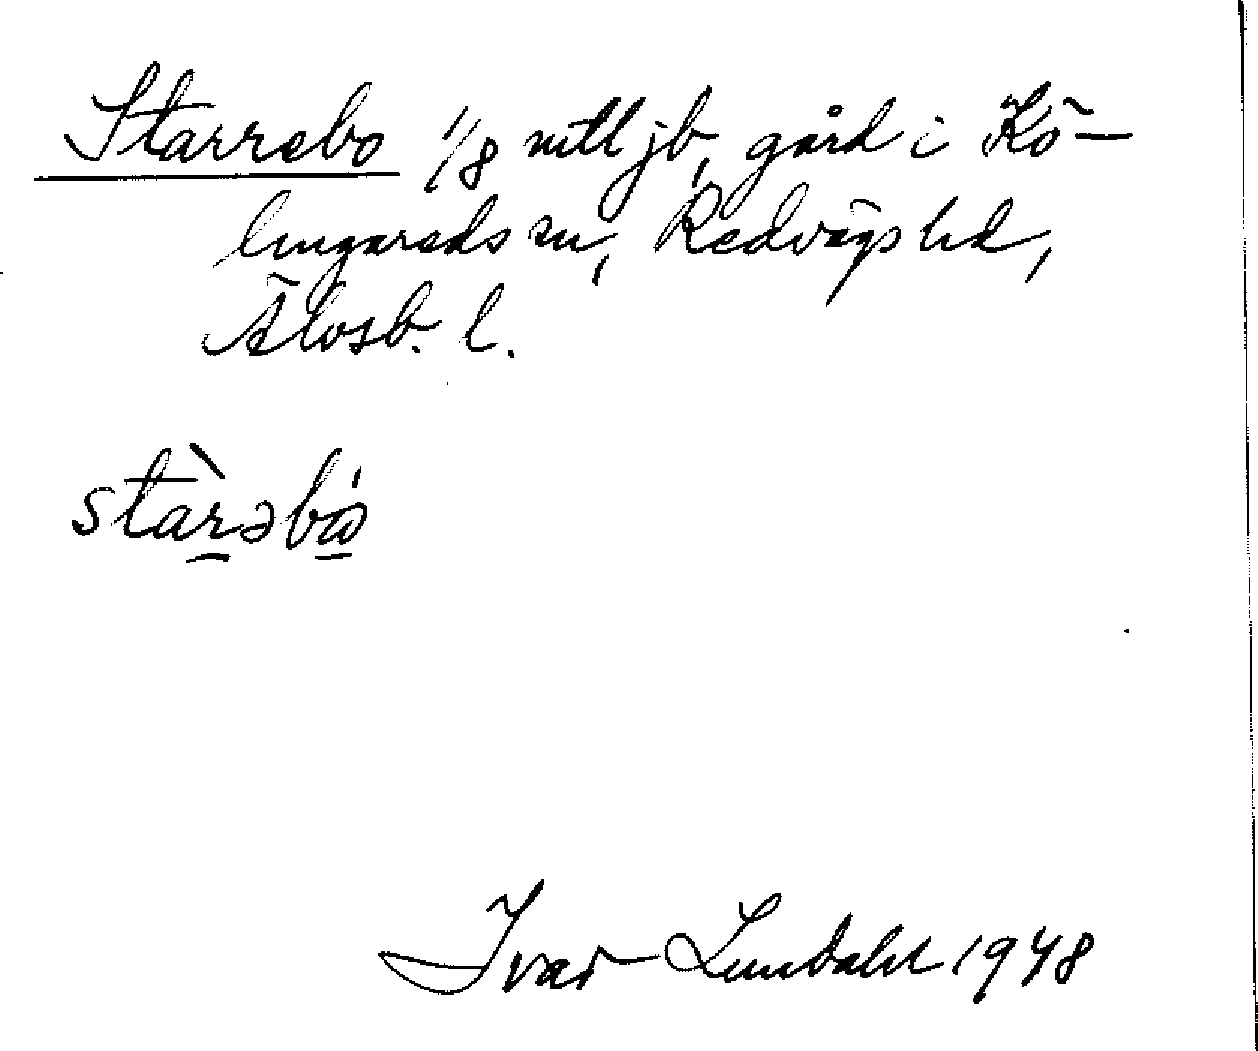 Starrebo 1/8 mtl jb, gård i Kö-
lingareds sn, Redvägs hd,
Älvsb. l.
stàrəbὼ
Ivar Lundahl 1948